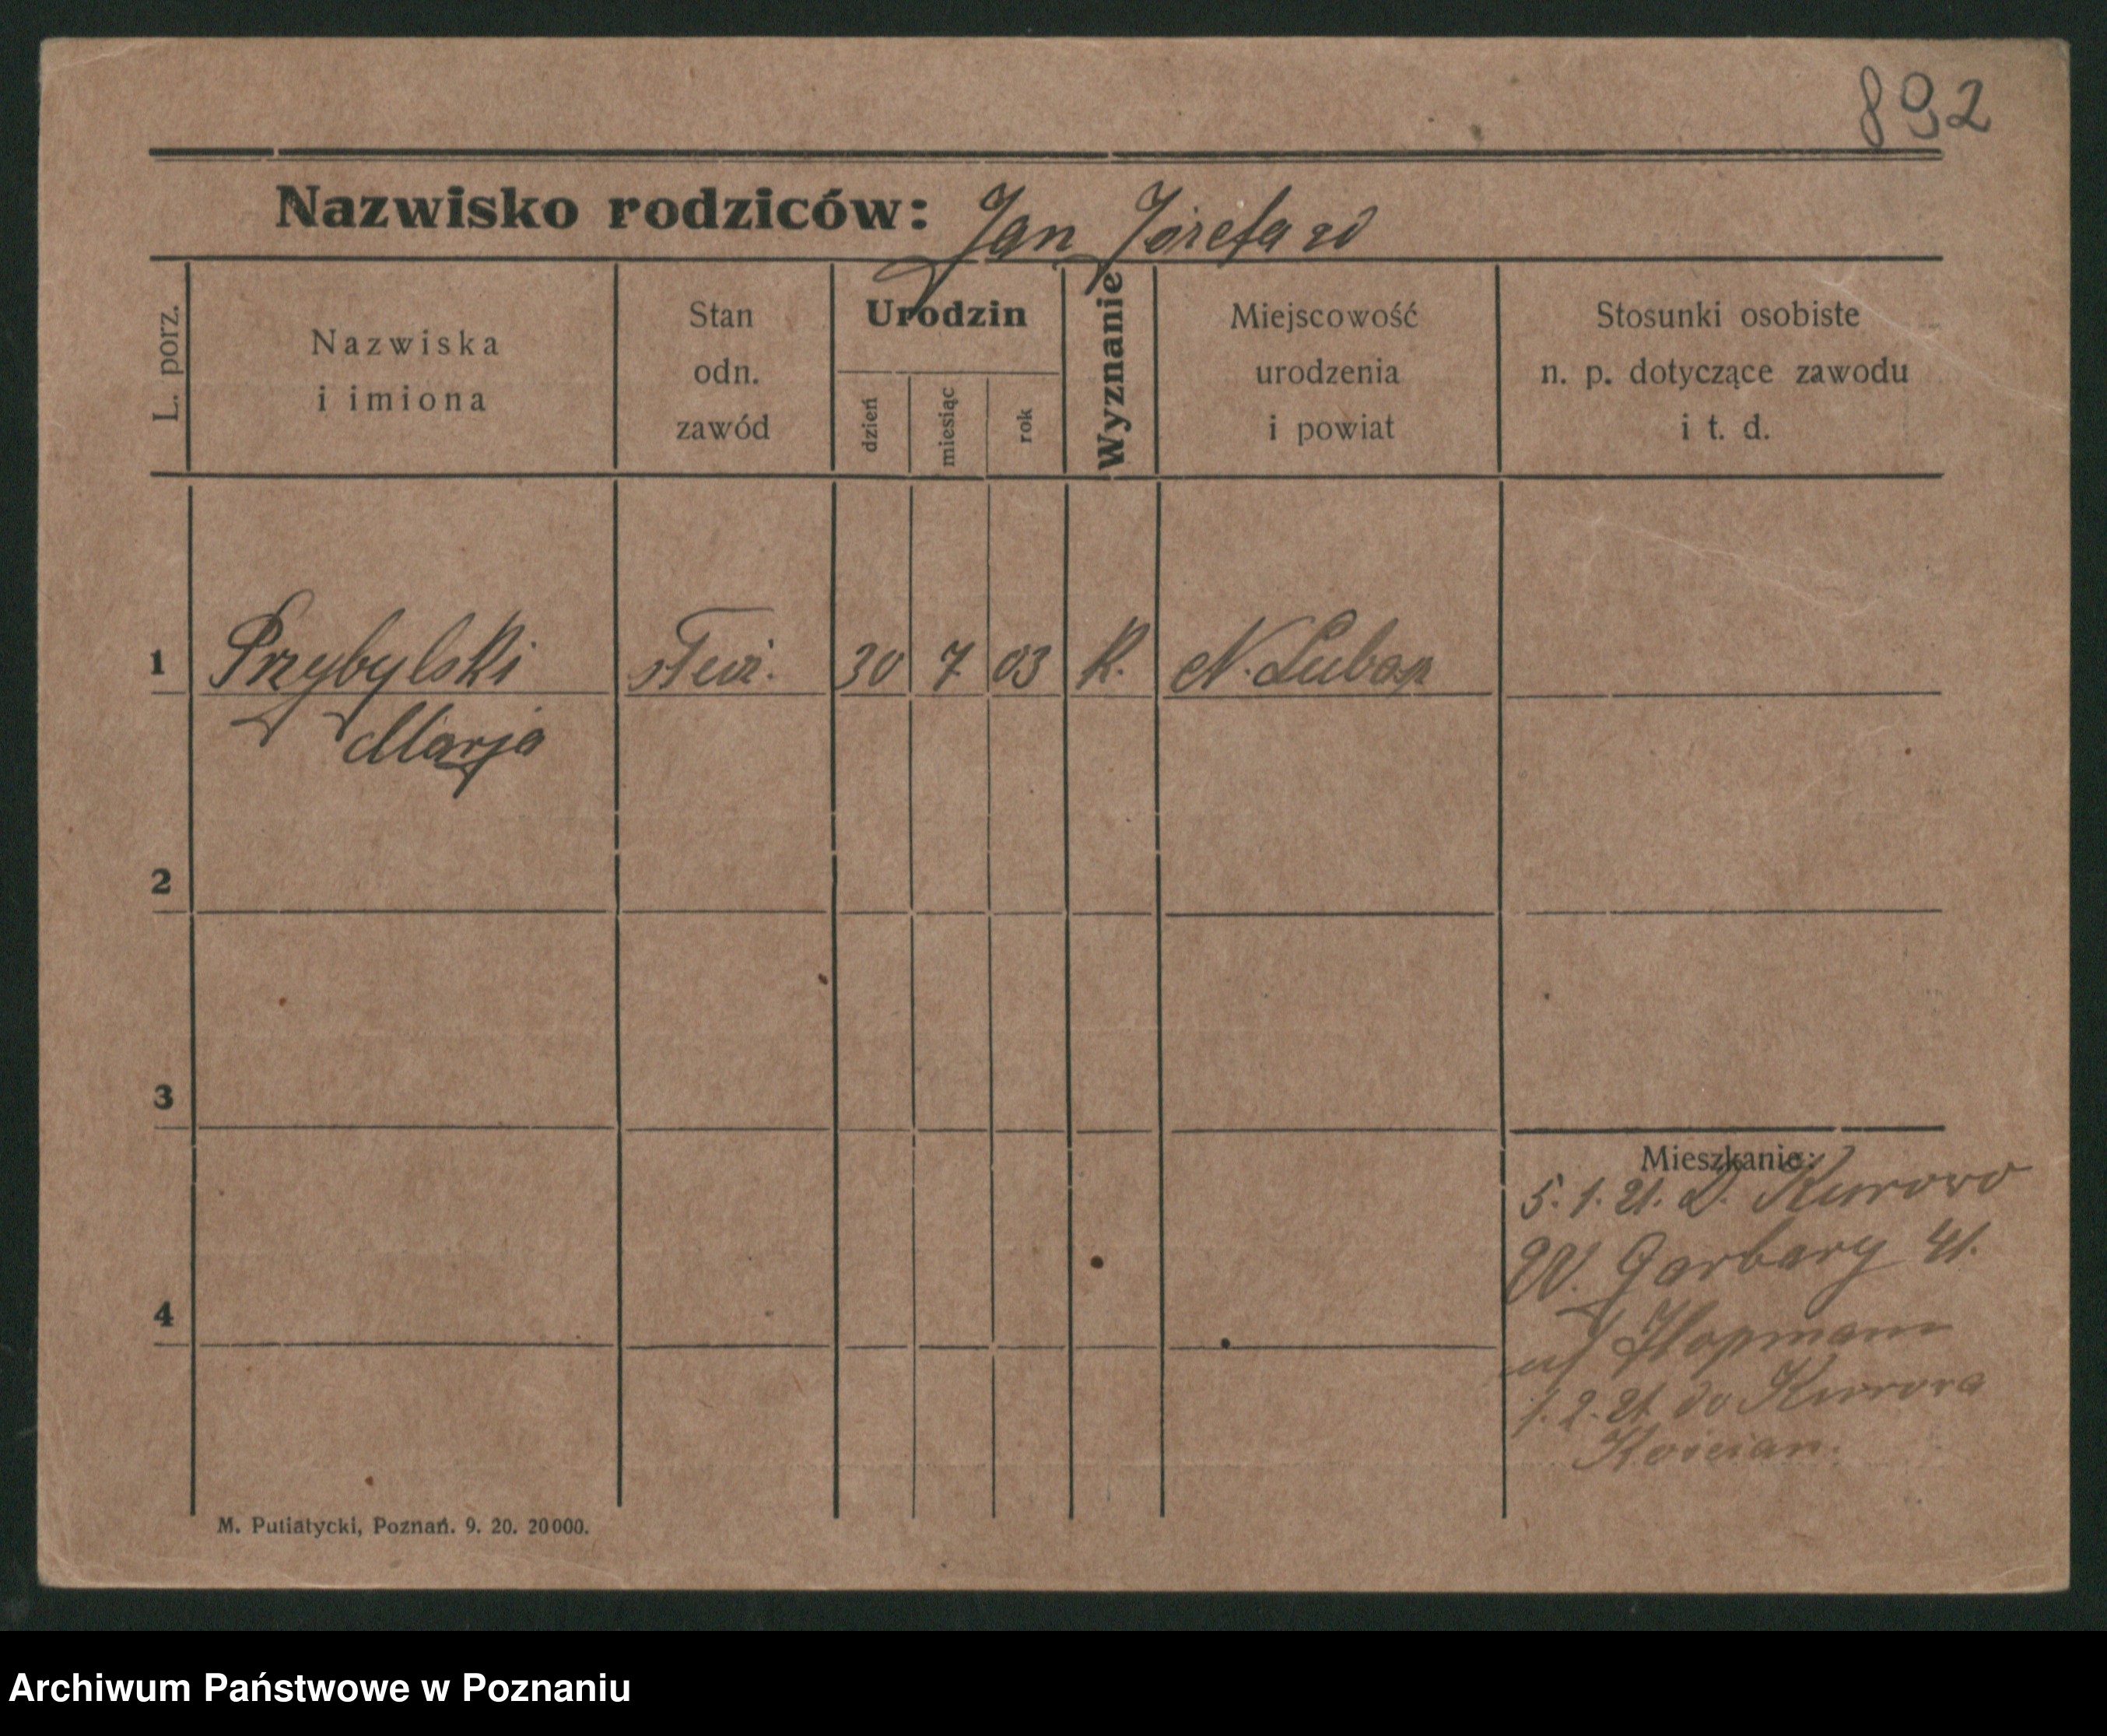 892
Nazwisko rodziców: Jan Józefa
L. porz.
Nazwiska
i imiona
Stan
odn.
zawód
Urodzin
dzień
miesiąc
rok
Wyznanie
Miejscowość
urodzenia
i powiat
Stosunki osobiste
n. p. dotyczące zawodu
i t. d.
1 Przybylski 30 7 03 K. N. Luboń
Marja
2
3
4
Mieszkanie:
5. 1. 21. D. Kurowo
W. Garbary 41.
1. 2. 21 do Kurowa
Kościan.
M. Putiatycki, Poznań. 9. 20. 20000.
Archiwum Państwowe w Poznaniu